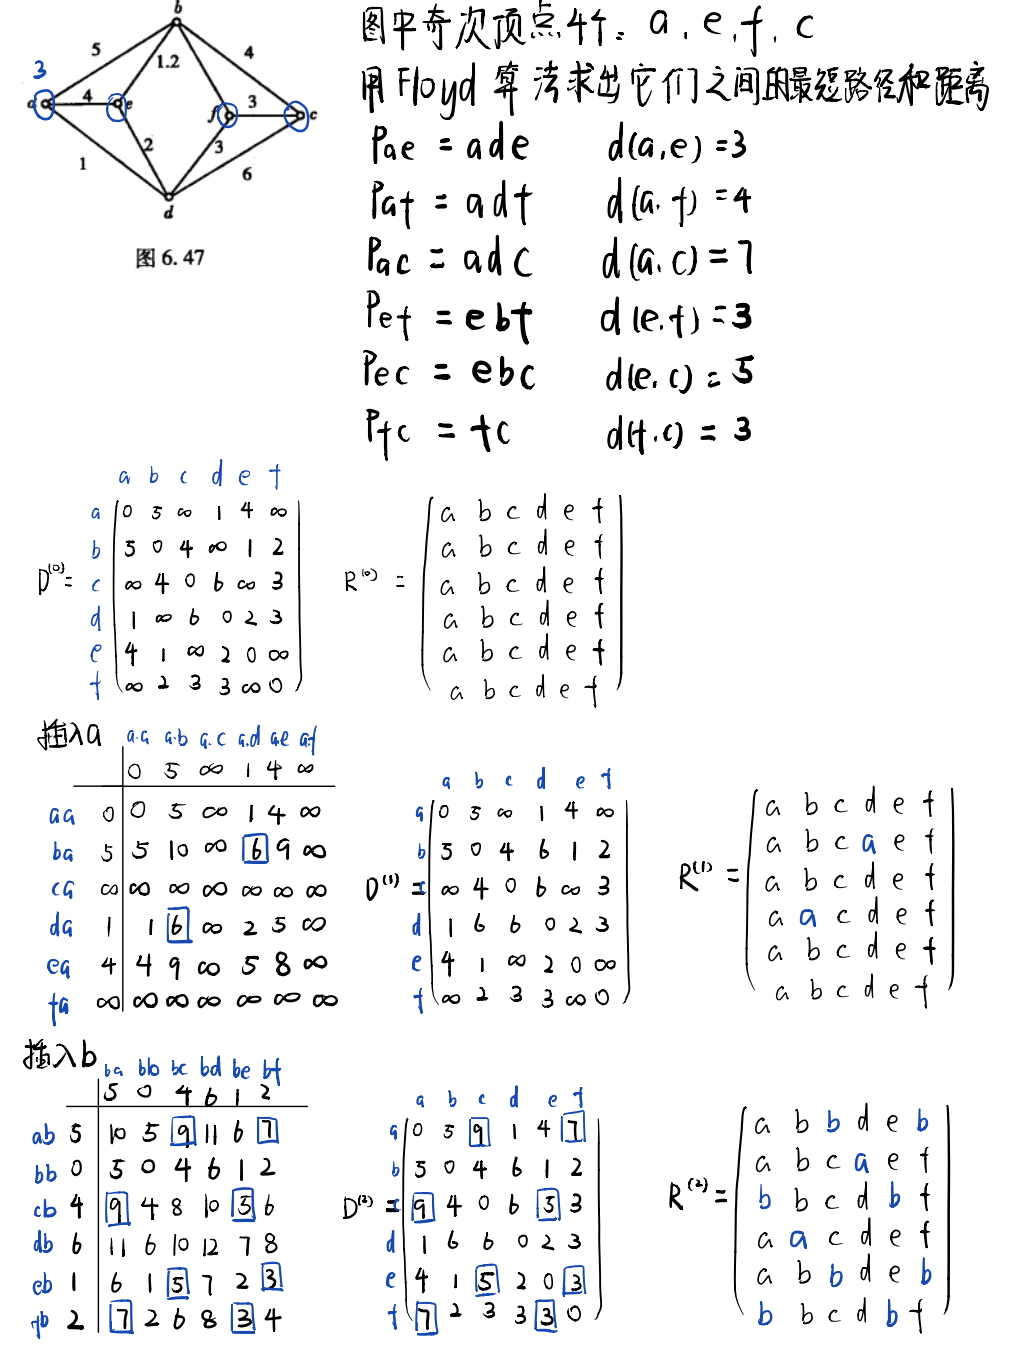 图中奇次顶点4个: a, e, f, c
用Floyd算法求出它们之间的最短路径和距离
b
5 1.2 4
3
a 4 e f 3 c
1 2 3 6
d
图 6.47
Pae = ade d(a,e) = 3
Paf = adf d(a,f) = 4
Pac = adc d(a,c) = 7
Pef = ebf d(e,f) = 3
Pec = ebc d(e,c) = 5
Pfc = fc d(f,c) = 3
a b c d e f
a 0 5 ∞ 1 4 ∞ a b c d e f
b 5 0 4 ∞ 1 2 a b c d e f
D(0)= c ∞ 4 0 6 ∞ 3 R(0) = a b c d e f
d 1 ∞ 6 0 2 3 a b c d e f
e 4 1 ∞ 2 0 ∞ a b c d e f
f ∞ 2 3 3 ∞ 0 a b c d e f
插入a a.a a.b a.c a.d a.e a.f
0 5 ∞ 1 4 ∞ a b c d e f
aa 0 0 5 ∞ 1 4 ∞ a 0 5 ∞ 1 4 ∞ a b c d e f
ba 5 5 10 ∞ 6 9 ∞ b 5 0 4 6 1 2 a b c a e f
ca ∞ ∞ ∞ ∞ ∞ ∞ ∞ D(1) = ∞ 4 0 6 ∞ 3 R(1) = a b c d e f
da 1 1 6 ∞ 2 5 ∞ d 1 6 6 0 2 3 a a c d e f
ea 4 4 9 ∞ 5 8 ∞ e 4 1 ∞ 2 0 ∞ a b c d e f
fa ∞ ∞ ∞ ∞ ∞ ∞ ∞ f ∞ 2 3 3 ∞ 0 a b c d e f
插入b ba bb bc bd be bf
5 0 4 6 1 2 a b c d e f
ab 5 10 5 9 11 6 7 a 0 5 9 1 4 7 a b b d e b
bb 0 5 0 4 6 1 2 b 5 0 4 6 1 2 a b c a e f
cb 4 9 4 8 10 5 6 D(2) = 9 4 0 6 5 3 R(2) = b b c d b f
db 6 11 6 10 12 7 8 d 1 6 6 0 2 3 a a c d e f
eb 1 6 1 5 7 2 3 e 4 1 5 2 0 3 a b b d e b
fb 2 7 2 6 8 3 4 f 7 2 3 3 3 0 b b c d b f